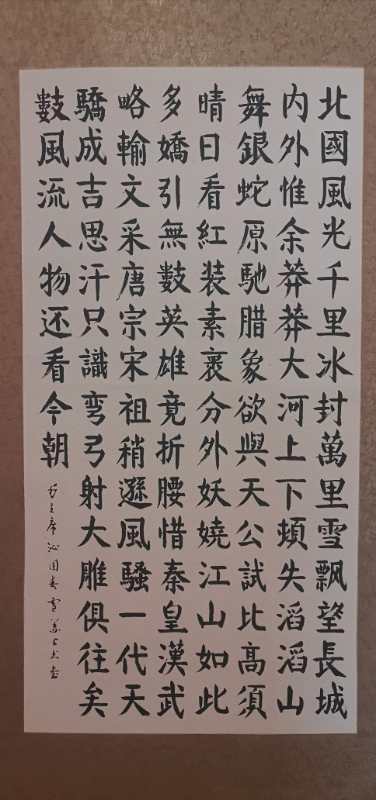 北國風光千里冰封萬里雪飄望長城
内外惟余莽莽大河上下頓失滔滔山
舞銀蛇原馳腊象欲與天公試比高須
晴日看紅装素裹分外妖嬈江山如此
多嬌引無數英雄竟折腰惜秦皇漢武
略輸文采唐宗宋祖稍遜風騷一代天
驕成吉思汗只識弯弓射大雕俱往矣
數風流人物还看今朝
毛主席沁园春雪